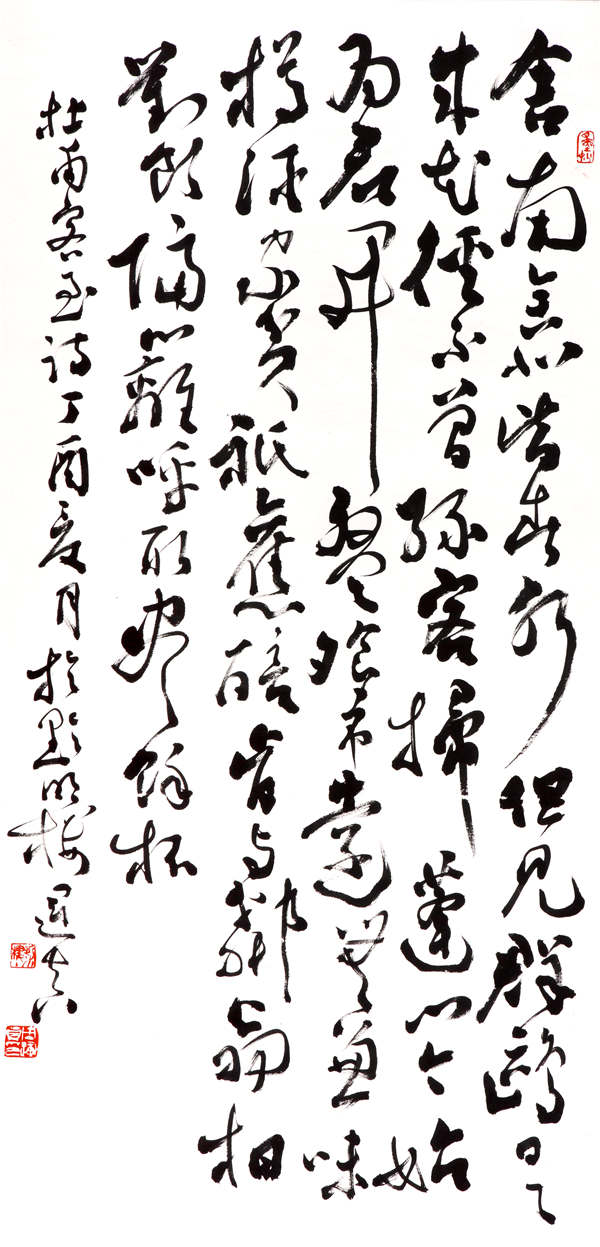 舍南舍北皆春水但見群鷗日日
來花徑不曾緣客掃蓬門今始
為君開盤飧市遠無兼味
樽酒家貧祇舊醅肯與鄰翁相
對飲隔籬呼取盡餘杯
杜甫客至詩丁酉夏月於